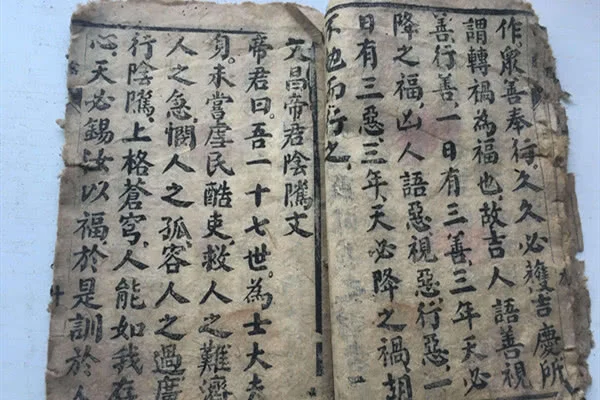 作，眾善奉行，久久必獲吉慶，所
謂轉禍為福也，故吉人語善視
善行善，一日有三善，三年天必
降之福，凶人語惡視惡行惡，一
日有三惡，三年天必降之禍，胡
不勉而行之，
文昌帝君陰騭文
帝君曰。吾一十七世。為士大夫
身。未嘗虐民酷吏，救人之難，濟
人之急，憫人之孤，容人之過，廣
行陰騭，上格蒼穹，人能如我存
心，天必錫汝以福，於是訓於人